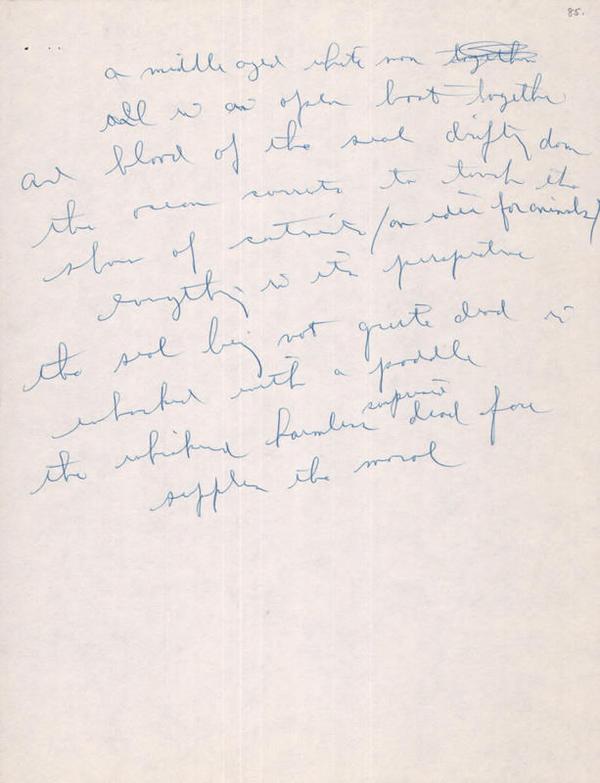 85.
a middle aged white man together
all in an open boat together
and blood of the seal drifting down
the ocean currents to touch the
shore of (an idea for animals)
everything in its perspective
the seal being not quite dead is
whacked with a paddle
surprised
the whiskered harmless dead face
supplies the moral